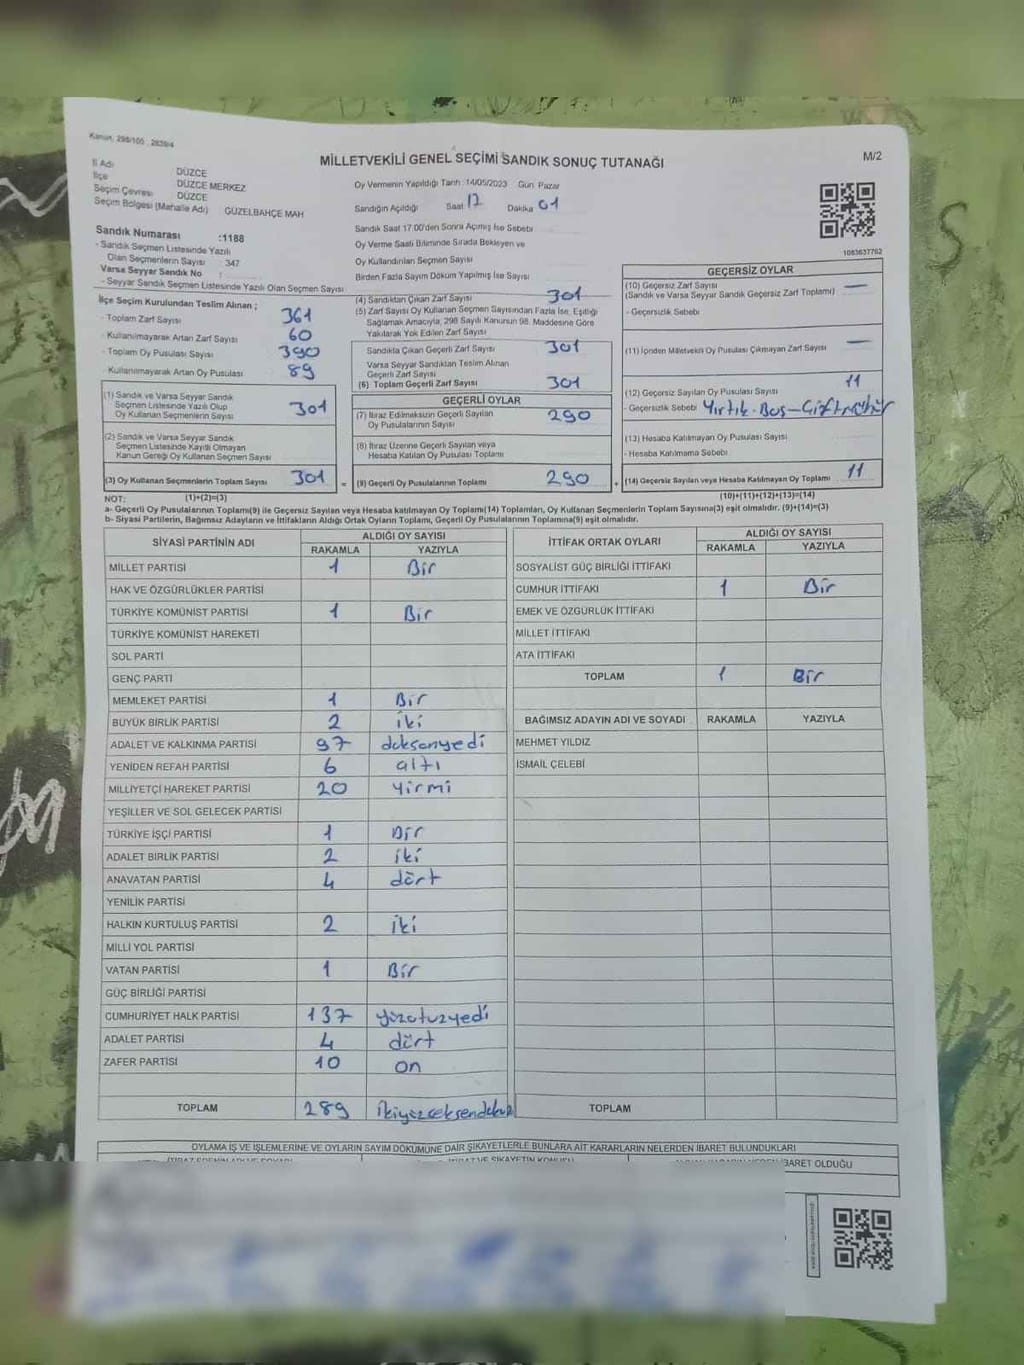 Kanun: 298/105 2839/4
MİLLETVEKİLİ GENEL SEÇİMİ SANDIK SONUÇ TUTANAĞI
M/2
İl Adı DÜZCE
İlçe DÜZCE MERKEZ
Seçim Çevresi DÜZCE
Seçim Bölgesi (Mahalle Adı) GÜZELBAHÇE MAH
Oy Vermenin Yapıldığı Tarih :14/05/2023 Gün Pazar
Sandığın Açıldığı Saat 17 Dakika 01
Sandık Saat 17.00'den Sonra Açılmış İse Sebebi
Oy Verme Saati Bitiminde Sırada Bekleyen ve
Oy Kullandırılan Seçmen Sayısı
Birden Fazla Sayım Döküm Yapılmış İse Sayısı
1083637762
Sandık Numarası :1188
- Sandık Seçmen Listesinde Yazılı
Olan Seçmenlerin Sayısı : 347
Varsa Seyyar Sandık No :
- Seyyar Sandık Seçmen Listesinde Yazılı Olan Seçmen Sayısı
İlçe Seçim Kurulundan Teslim Alınan ;
- Toplam Zarf Sayısı 361
- Kullanılmayarak Artan Zarf Sayısı 60
- Toplam Oy Pusulası Sayısı 390
- Kullanılmayarak Artan Oy Pusulası 89
(1) Sandık ve Varsa Seyyar Sandık
Seçmen Listesinde Yazılı Olup
Oy Kullanan Seçmenlerin Sayısı 301
(2) Sandık ve Varsa Seyyar Sandık
Seçmen Listesinde Kaydı Olmayan
Kanun Gereği Oy Kullanan Seçmen Sayısı
(3) Oy Kullanan Seçmenlerin Toplam Sayısı 301 =
(4) Sandıktan Çıkan Zarf Sayısı 301
(5) Zarf Sayısı Oy Kullanan Seçmen Sayısından Fazla İse, Eşitliği
Sağlamak Amacıyla, 298 Sayılı Kanunun 98. Maddesine Göre
Yakılarak Yok Edilen Zarf Sayısı
Sandıkta Çıkan Geçerli Zarf Sayısı 301
Varsa Seyyar Sandıktan Teslim Alınan
Geçerli Zarf Sayısı
(6) Toplam Geçerli Zarf Sayısı 301
GEÇERLİ OYLAR
(7) İtiraz Edilmeksizin Geçerli Sayılan
Oy Pusulalarının Sayısı 290
(8) İtiraz Üzerine Geçerli Sayılan veya
Hesaba Katılan Oy Pusulası Toplamı
(9) Geçerli Oy Pusulalarının Toplamı 290 +
GEÇERSİZ OYLAR
(10) Geçersiz Zarf Sayısı —
(Sandık ve Varsa Seyyar Sandık Geçersiz Zarf Toplamı)
- Geçersizlik Sebebi
(11) İçinden Milletvekili Oy Pusulası Çıkmayan Zarf Sayısı —
(12) Geçersiz Sayılan Oy Pusulası Sayısı 11
- Geçersizlik Sebebi Yırtık-Boş-
(13) Hesaba Katılmayan Oy Pusulası Sayısı
- Hesaba Katılmama Sebebi
(14) Geçersiz Sayılan veya Hesaba Katılmayan Oy Toplamı 11
NOT: (1)+(2)=(3) (10)+(11)+(12)+(13)=(14)
a- Geçerli Oy Pusulalarının Toplamı(9) ile Geçersiz Sayılan veya Hesaba katılmayan Oy Toplamı(14) Toplamları, Oy Kullanan Seçmenlerin Toplam Sayısına(3) eşit olmalıdır. (9)+(14)=(3)
b- Siyasi Partilerin, Bağımsız Adayların ve İttifakların Aldığı Ortak Oyların Toplamı, Geçerli Oy Pusulalarının Toplamına(9) eşit olmalıdır.
SİYASİ PARTİNİN ADI ALDIĞI OY SAYISI
RAKAMLA YAZIYLA
MİLLET PARTİSİ 1 Bir
HAK VE ÖZGÜRLÜKLER PARTİSİ
TÜRKİYE KOMÜNİST PARTİSİ 1 Bir
TÜRKİYE KOMÜNİST HAREKETİ
SOL PARTİ
GENÇ PARTİ
MEMLEKET PARTİSİ 1 Bir
BÜYÜK BİRLİK PARTİSİ 2 iki
ADALET VE KALKINMA PARTİSİ 97 doksanyedi
YENİDEN REFAH PARTİSİ 6 altı
MİLLİYETÇİ HAREKET PARTİSİ 20 Yirmi
YEŞİLLER VE SOL GELECEK PARTİSİ
TÜRKİYE İŞÇİ PARTİSİ 1 Bir
ADALET BİRLİK PARTİSİ 2 iki
ANAVATAN PARTİSİ 4 dört
YENİLİK PARTİSİ
HALKIN KURTULUŞ PARTİSİ 2 iki
MİLLİ YOL PARTİSİ
VATAN PARTİSİ 1 Bir
GÜÇ BİRLİĞİ PARTİSİ
CUMHURİYET HALK PARTİSİ 137 yüzotuzyedi
ADALET PARTİSİ 4 dört
ZAFER PARTİSİ 10 on
TOPLAM 289 ikiyüzseksendokuz
İTTİFAK ORTAK OYLARI ALDIĞI OY SAYISI
RAKAMLA YAZIYLA
SOSYALİST GÜÇ BİRLİĞİ İTTİFAKI
CUMHUR İTTİFAKI 1 Bir
EMEK VE ÖZGÜRLÜK İTTİFAKI
MİLLET İTTİFAKI
ATA İTTİFAKI
TOPLAM 1 Bir
BAĞIMSIZ ADAYIN ADI VE SOYADI RAKAMLA YAZIYLA
MEHMET YILDIZ
İSMAİL ÇELEBİ
TOPLAM
OYLAMA İŞ VE İŞLEMLERİNE VE OYLARIN SAYIM DÖKÜMÜNE DAİR ŞİKAYETLERLE BUNLARA AİT KARARLARIN NELERDEN İBARET BULUNDUKLARI
İBARET OLDUĞU